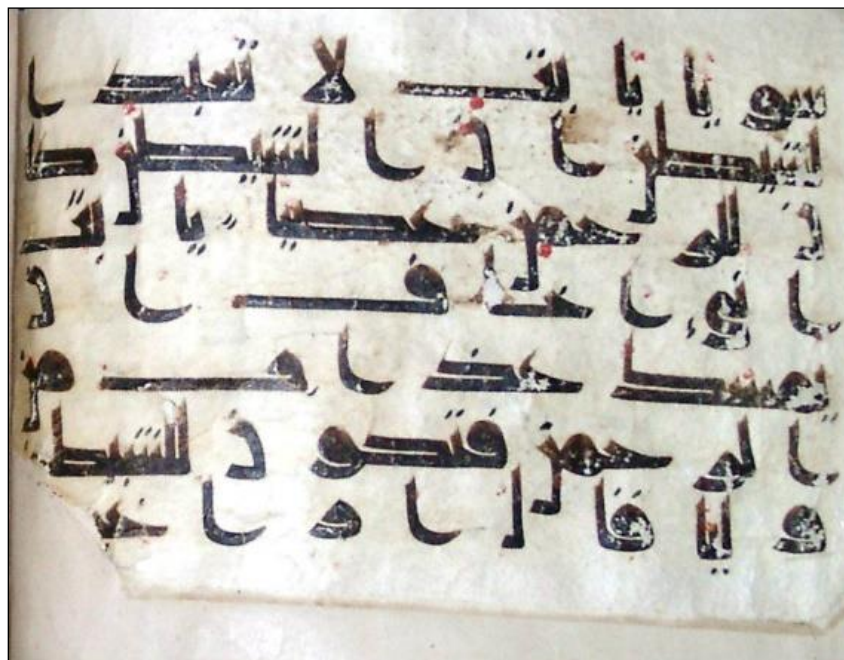 سويا يابت لا تعبد ا
لشيطن ان الشيطن كا
ن للرحمن عصيا يابت
اني اخاف ان
يمسك عذاب من
الرحمن فتكون للشيطن
وليا قال ارا